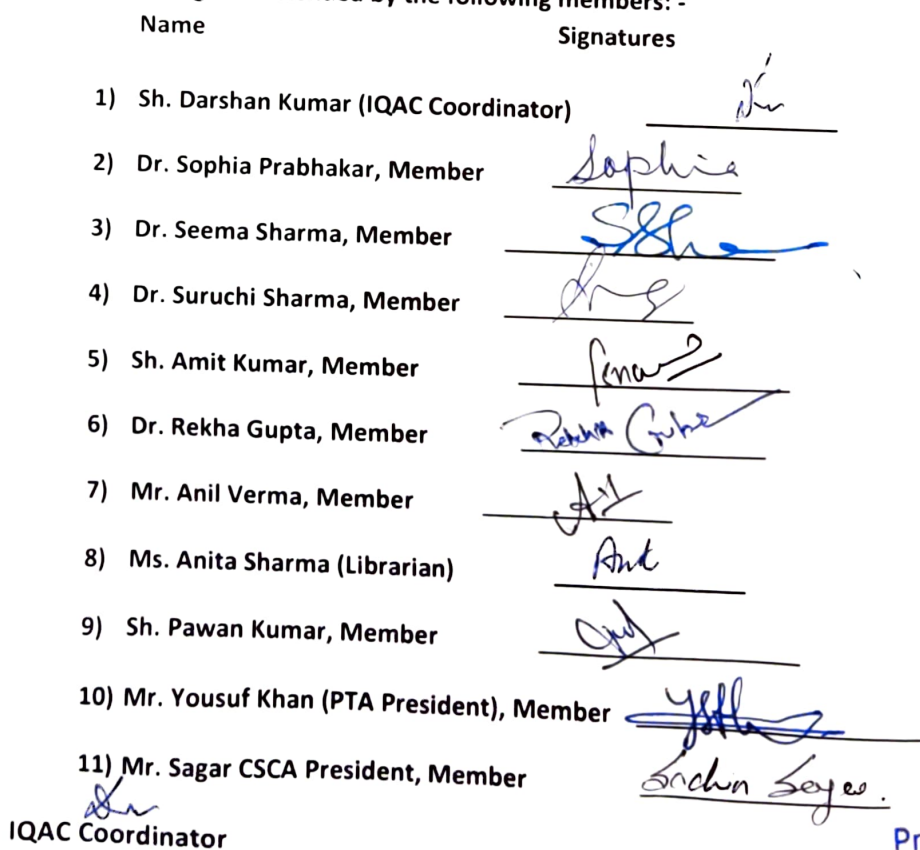 by the following members: -
Name Signatures
1) Sh. Darshan Kumar (IQAC Coordinator)
2) Dr. Sophia Prabhakar, Member Sophia
3) Dr. Seema Sharma, Member
4) Dr. Suruchi Sharma, Member
5) Sh. Amit Kumar, Member
6) Dr. Rekha Gupta, Member Rekha Gupta
7) Mr. Anil Verma, Member
8) Ms. Anita Sharma (Librarian)
9) Sh. Pawan Kumar, Member
10) Mr. Yousuf Khan (PTA President), Member
11) Mr. Sagar CSCA President, Member Sachin
IQAC Coordinator Pr